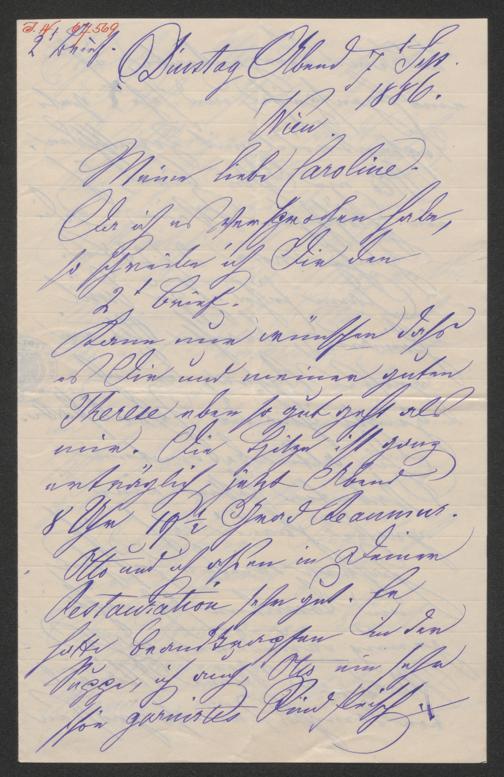 I. N. 67.569
2t Brief.
Dinstag Abend 7t Sep.
1886.
Wien.
Meine liebe Caroline.
Da ich es versprochen habe,
so schreibe ich Dir den
2t Brief.
Kann nur wünschen dahs
es Dir und meiner guten
Therese eben so gut geht als
mir. Die Hitze ist ganz
erträglich, jetzt Abend
8 Uhr 19 1/2 Grad Reaumur.
Otto und ich assen in Deiner
Restauration sehr gut. Er
hatte Brandkrapfen in der
Suppe, ich auch, Otto ein sehr
schön garnirtes Rindfleisch